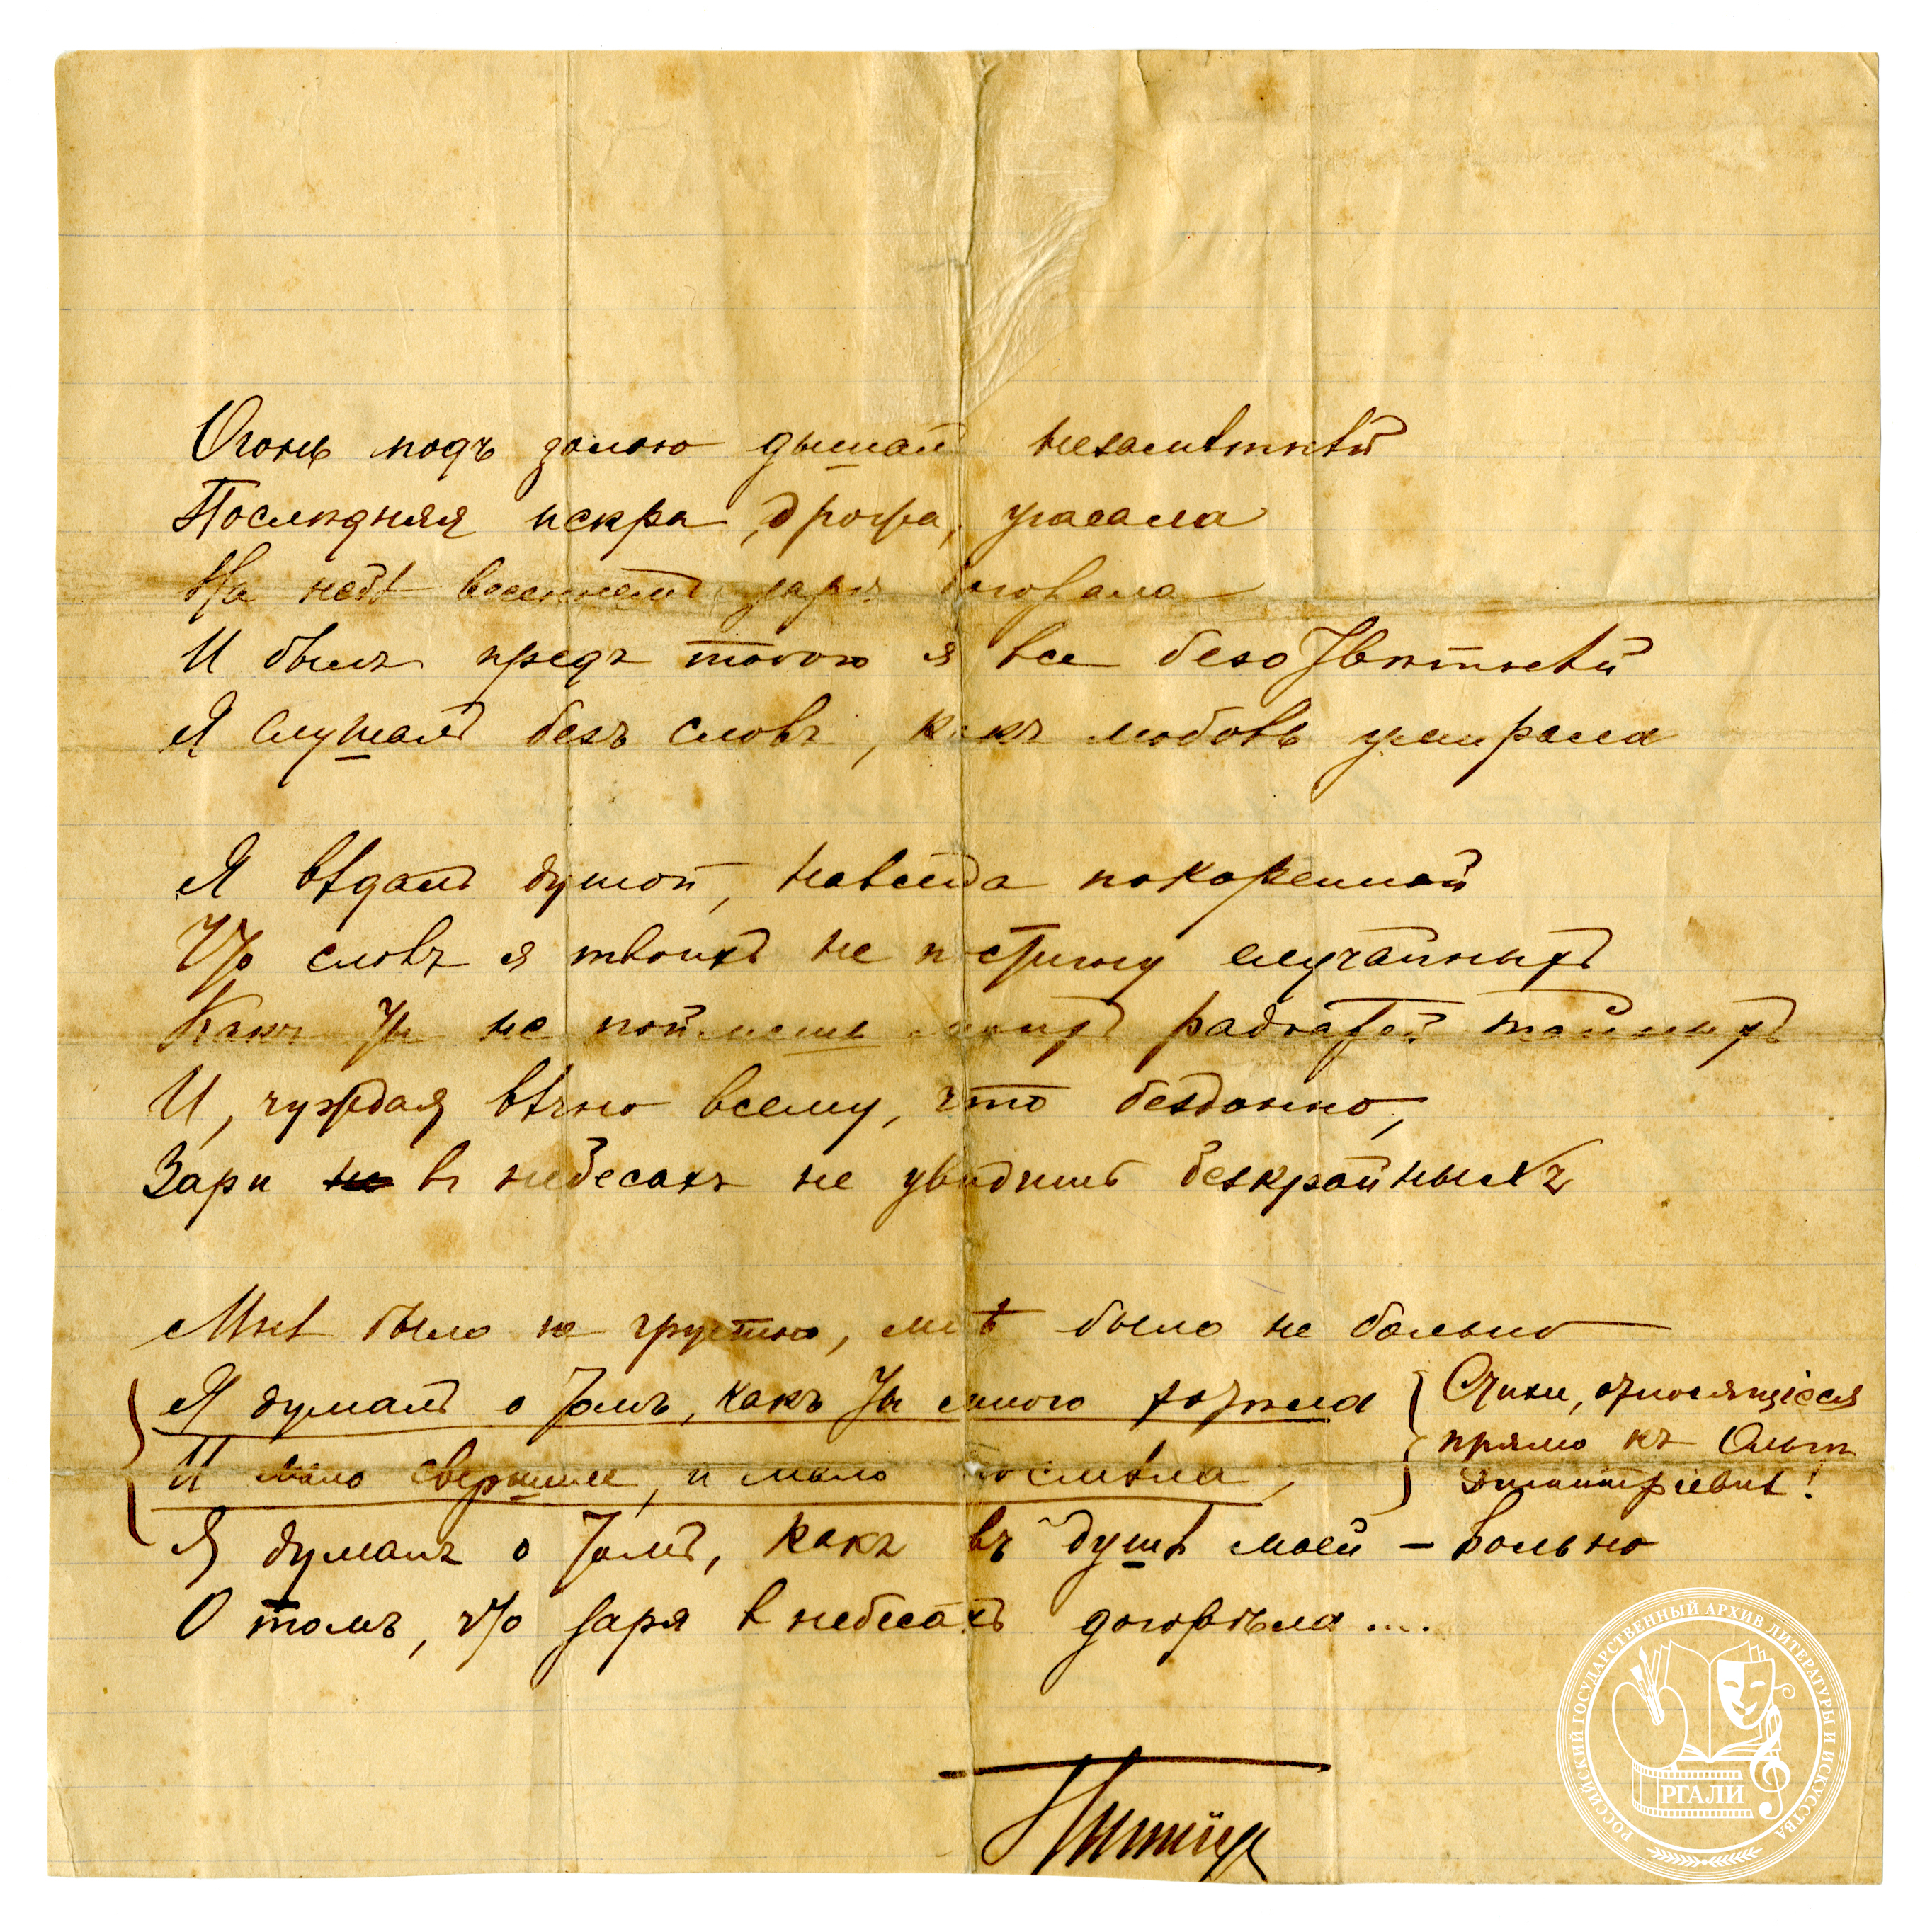 Огонь подъ золою дышалъ незамѣтнѣй
Послѣдняя искра, дрожа, угасала
На небѣ весеннемъ заря догорала
И былъ предъ тобою я все безотвѣтнѣй
Я слушалъ безъ словъ, какъ любовь умирала
Я вѣдалъ душой, навсегда покоренной
Что словъ я твоихъ не постигну случайныхъ
Какъ ты не поймешь моихъ радостей тайныхъ
И, чуждая вѣчно всему, что бездонно,
Зари не въ небесахъ не увидишь безкрайныхъ
Мнѣ было не грустно, мнѣ было не больно
Я думалъ о томъ, какъ ты много хотѣла
И мало свершила, и мало посмѣла,
Я думалъ о томъ, какъ въ душѣ моей – вольно
О томъ, что заря в небесахъ догорѣла....
Стихи, относящіеся
прямо къ Ольгѣ
Дмитріевнѣ!
РОССИЙСКИЙ ГОСУДАРСТВЕННЫЙ АРХИВ ЛИТЕРАТУРЫ И ИСКУССТВА
РГАЛИ